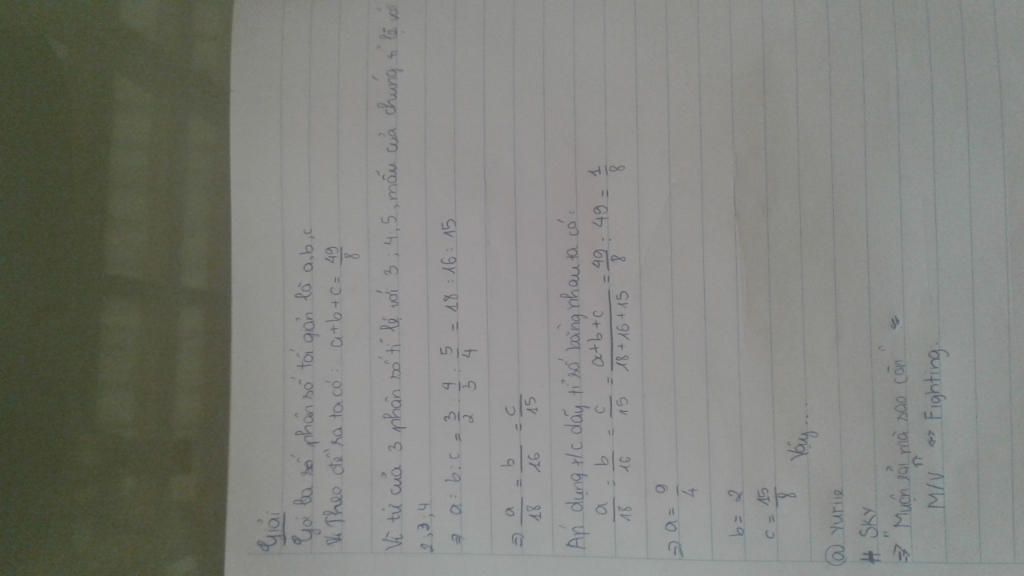 Giải
Gọi ba số phân số tối giản là a,b,c
Vì Theo đề ra ta có: a+b+c = 49/8
Vì tử của 3 phân số tỉ lệ với 3; 4, 5, mẫu của chúng tỉ lệ với
2,3,4
=> a : b : c = 3/2 : 4/3 : 5/4 = 18 : 16 : 15
=> a/18 = b/16 = c/15
Áp dụng t/c dãy tỉ số bằng nhau ta có:
a/18 = b/16 = c/15 = a+b+c/18+16+15 = 49/8 : 49 = 1/8
=> a = 9/4
b = 2
c = 15/8
Vậy...
@ Yurie
# Sky
=> " Muộn rồi mà sao còn "
M/V Fighting.